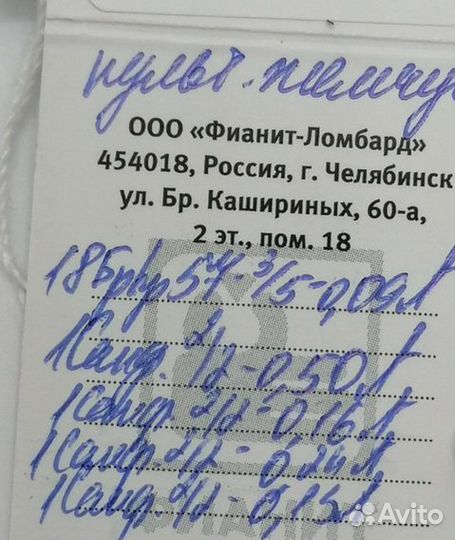 культ. жемчуг
ООО «Фианит-Ломбард»
454018, Россия, г. Челябинск
ул. Бр. Кашириных, 60-а,
2 эт., пом. 18
18Бр кр57-3/5-0,09л
1Сапф. 2/2-0,50л
1Сапф. 2/2-0,16л
1Сапф. 2/2-0,24л
1Сапф. 2/2-0,15л
Avito